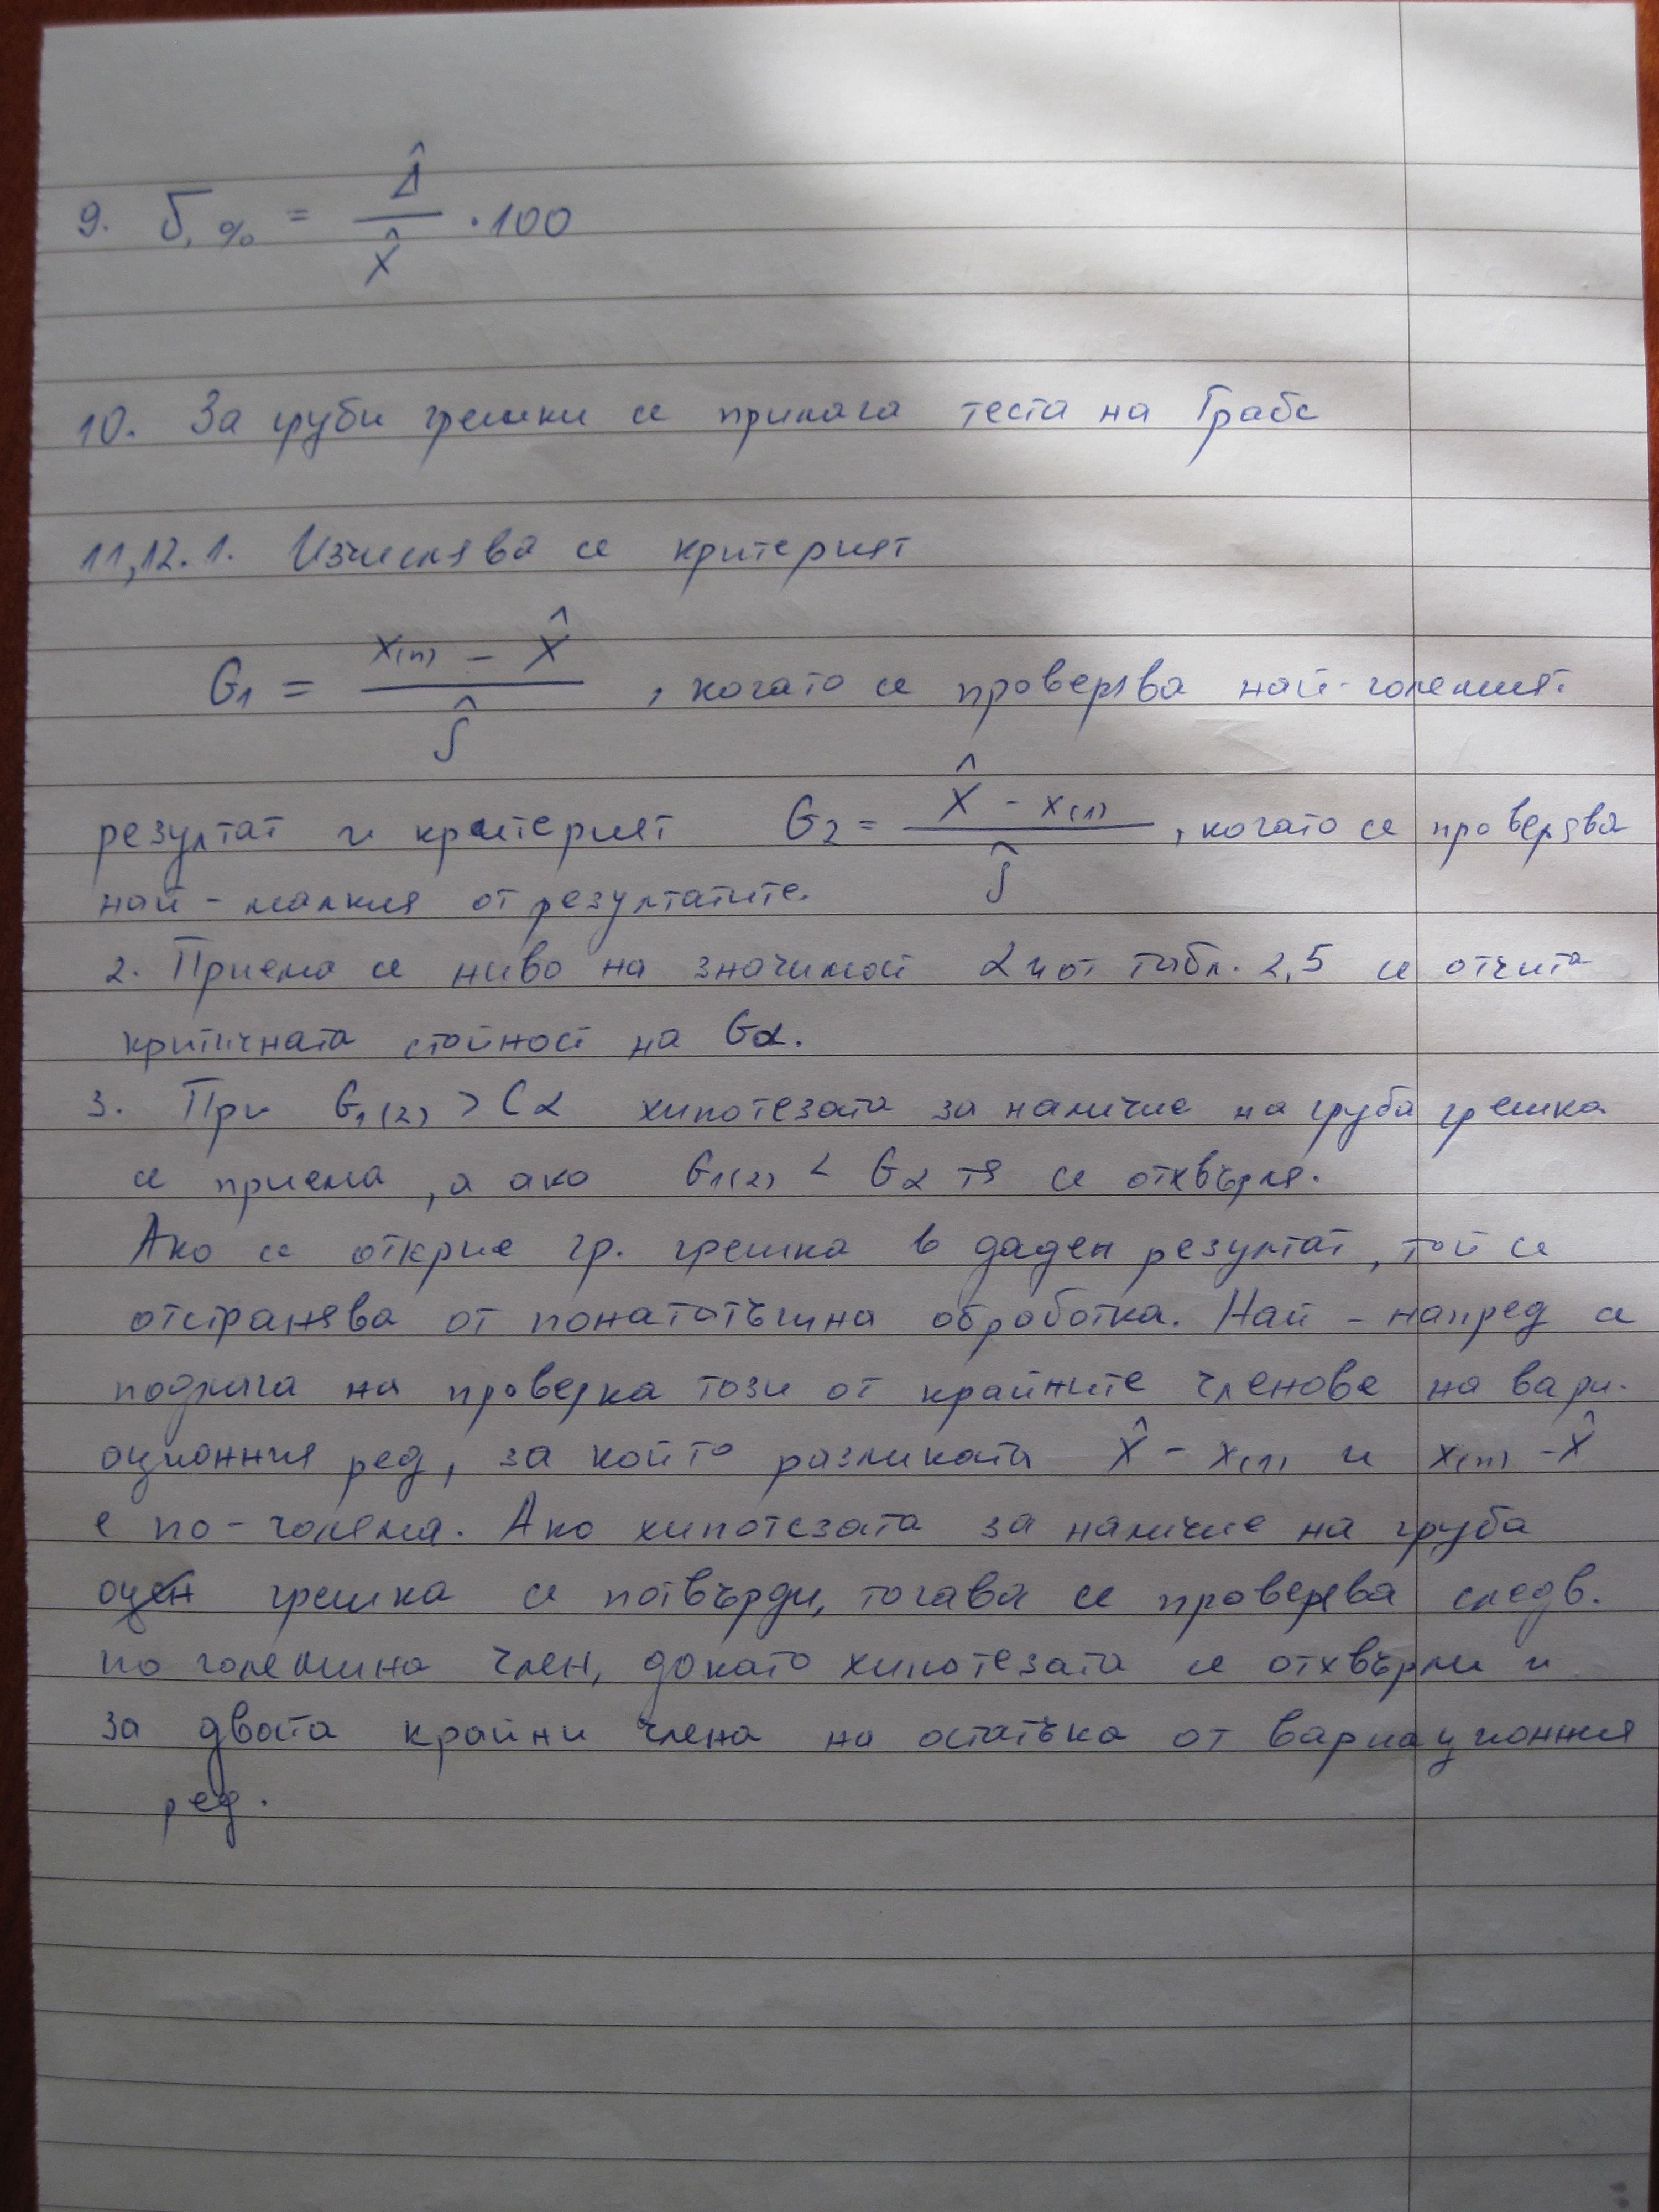 9. δ, % = Δ̂ / X̂ · 100
10. За груби грешки се прилага теста на Грабс
11,12. 1. Изчислява се критерият
G₁ = (x₍ₙ₎ - X̂) / Ŝ , когато се проверява най-големият
резултат и критерият G₂ = (X̂ - x₍₁₎) / Ŝ , когато се проверява
най-малкия от резултатите.
2. Приема се ниво на значимост α и от табл. 2,5 се отчита
критичната стойност на Gα.
3. При G₁₍₂₎ > Cα хипотезата за наличие на груба грешка
се приема, а ако G₁₍₂₎ < Gα тя се отхвърля.
Ако се открие гр. грешка в даден резултат, той се
отстранява от понататъшна обработка. Най-напред се
подлага на проверка този от крайните членове на вари-
оционния ред, за който разликата X̂ - x₍₁₎ и x₍ₙ₎ - X̂
е по-голяма. Ако хипотезата за наличие на груба
оцен грешка се потвърди, тогава се проверява следв.
по големина член, докато хипотезата се отхвърли и
за двата крайни члена на остатъка от вариационния
ред.